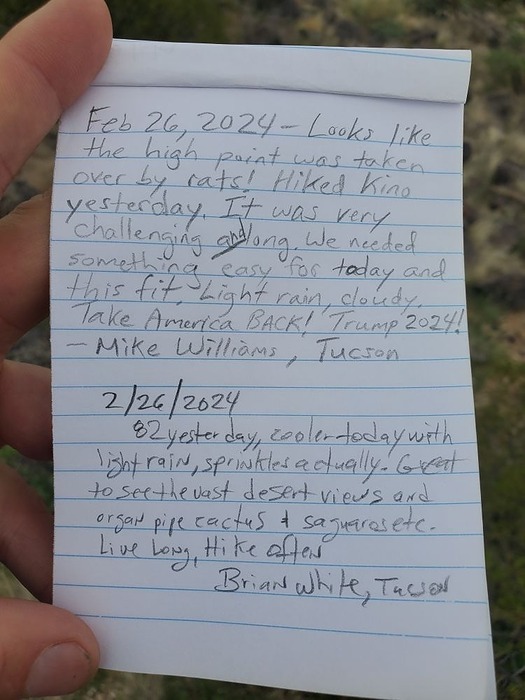 Feb 26, 2024 - Looks like
the high point was taken
over by rats! Hiked Kino
yesterday. It was very
challenging and long. We needed
something easy for today and
this fit. Light rain, cloudy.
Take America BACK! Trump 2024!
- Mike Williams, Tucson
2/26/2024
82 yesterday, cooler today with
light rain, sprinkles actually. Great
to see the vast desert views and
organ pipe cactus & saguaros etc.
Live Long, Hike often
Brian White, Tucson